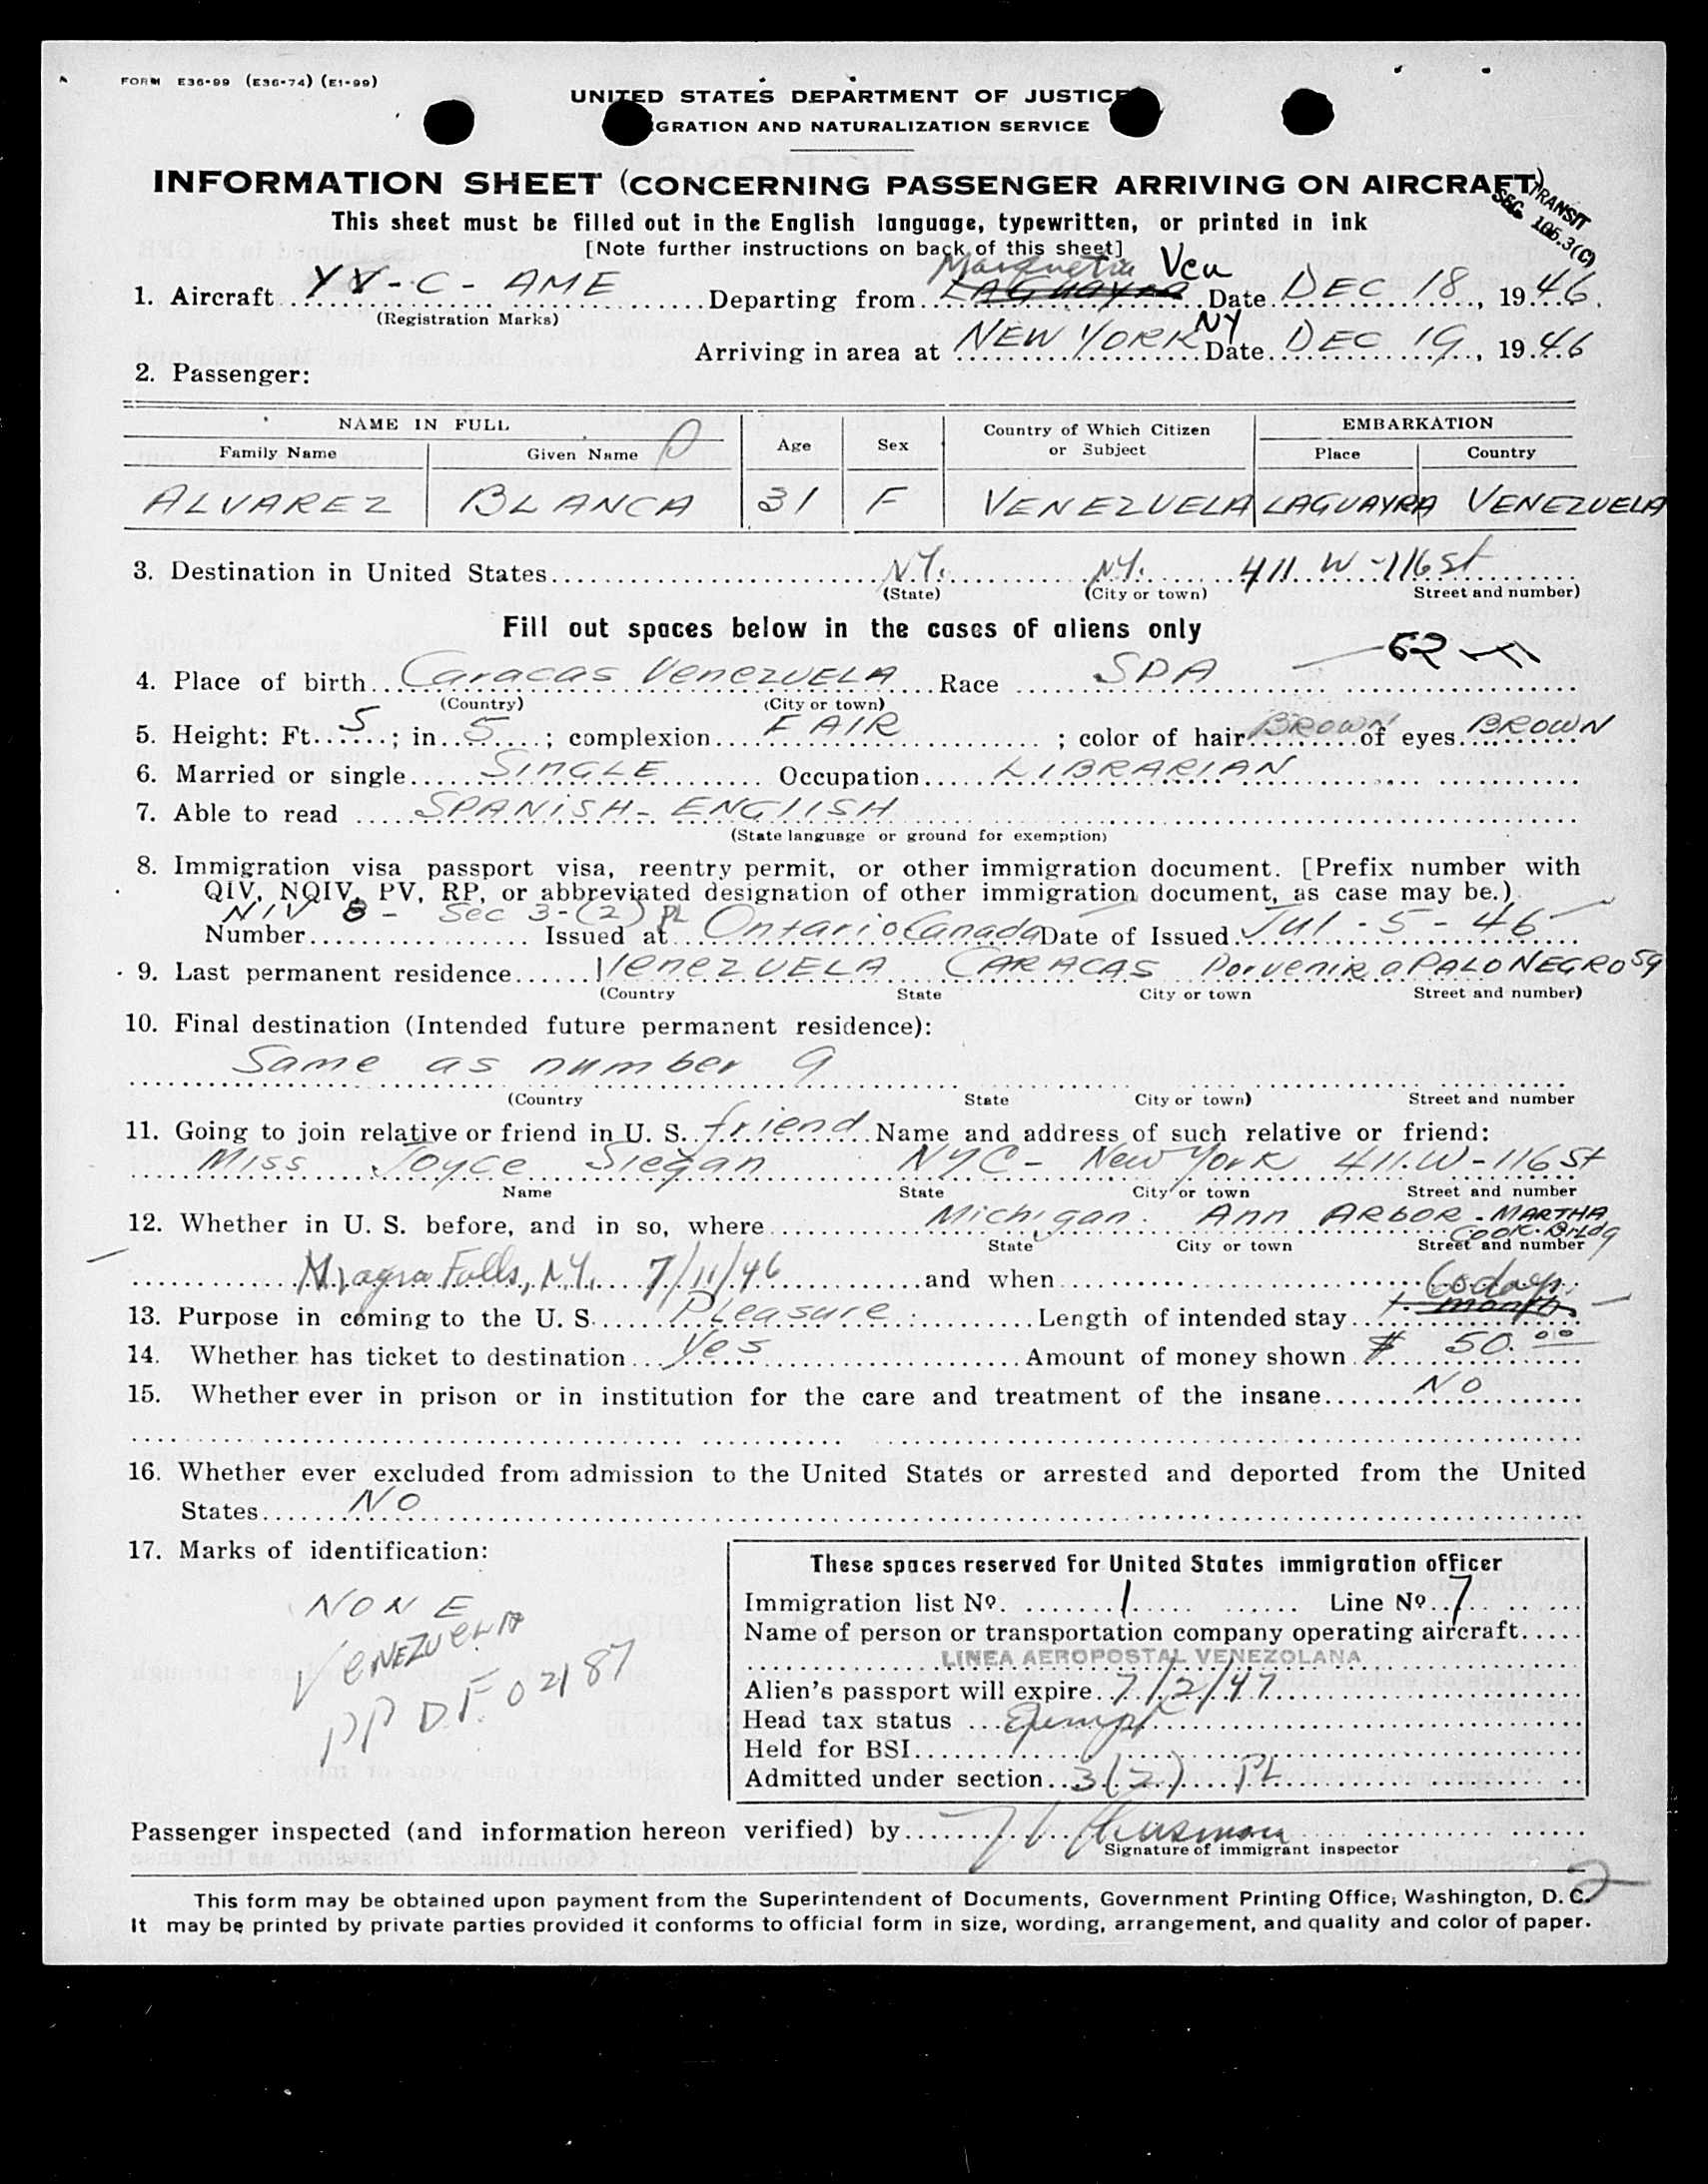 FORM E36-99 (E36-74) (E1-99)
UNITED STATES DEPARTMENT OF JUSTICE
GRATION AND NATURALIZATION SERVICE
INFORMATION SHEET (CONCERNING PASSENGER ARRIVING ON AIRCRAFT)
TRANSIT
SEC 105.3(C)
This sheet must be filled out in the English language, typewritten, or printed in ink
[Note further instructions on back of this sheet]
Maiquetia Ven
1. Aircraft YV-C-AME Departing from LAGUAYRA Date DEC 18, 1946.
(Registration Marks)
Arriving in area at NEW YORK NY Date DEC 19, 1946
2. Passenger:
NAME IN FULL Age Sex Country of Which Citizen or Subject EMBARKATION
Family Name Given Name Place Country
ALVAREZ BLANCA 31 F VENEZUELA LAGUAYRA VENEZUELA
3. Destination in United States N.Y. N.Y. 411 W-116 St
(State) (City or town) Street and number)
Fill out spaces below in the cases of aliens only
62
4. Place of birth Caracas VenezUELA Race SPA
(Country) (City or town)
5. Height: Ft. 5; in. 5; complexion FAIR; color of hair BROWN of eyes BROWN
6. Married or single SinGLE Occupation LIBRARIAN
7. Able to read SPANiSH- ENGlISH
(State language or ground for exemption)
8. Immigration visa passport visa, reentry permit, or other immigration document. [Prefix number with
QIV, NQIV, PV, RP, or abbreviated designation of other immigration document, as case may be.)
NIV 8 - Sec 3-(2) PL
Number Issued at Ontario Canada Date of Issued Jul-5-46
9. Last permanent residence VenezUELA CARACAS Porvenir a PALO NEGRO 59
(Country State City or town Street and number)
10. Final destination (Intended future permanent residence):
Same as number 9
(Country State City or town) Street and number
11. Going to join relative or friend in U. S. friend Name and address of such relative or friend:
Miss Joyce Siegan NYC- New York 411.W-116 St
Name State City or town Street and number
12. Whether in U. S. before, and in so, where Michigan. Ann ARbOR - MARTHA
COOK. BrLdg
State City or town Street and number
Niagra Falls, N.Y. 7/11/46 and when
60 days
13. Purpose in coming to the U. S. PLeasure Length of intended stay 1. month
14. Whether has ticket to destination Yes Amount of money shown $ 50.00
15. Whether ever in prison or in institution for the care and treatment of the insane NO
16. Whether ever excluded from admission to the United States or arrested and deported from the United
States NO
17. Marks of identification:
NONE
VeNEZUeLA
PP DF 02187
These spaces reserved for United States immigration officer
Immigration list No. 1 Line No. 7
Name of person or transportation company operating aircraft
LINEA AEROPOSTAL VENEZOLANA
Alien's passport will expire 7/2/47
Head tax status Exempt
Held for BSI
Admitted under section 3(2) PL
Passenger inspected (and information hereon verified) by
Signature of immigrant inspector
2
This form may be obtained upon payment from the Superintendent of Documents, Government Printing Office, Washington, D. C.
It may be printed by private parties provided it conforms to official form in size, wording, arrangement, and quality and color of paper.